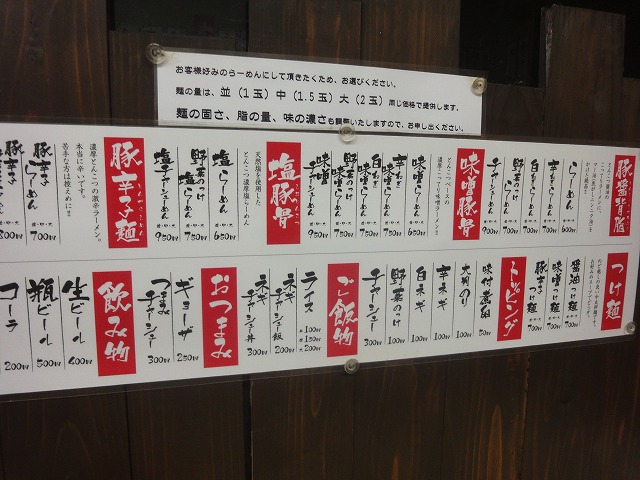 お客様好みのらーめんにして頂きたくため、お選びください。
麺の量は、並（1玉）中（1.5玉）大（2玉）同じ価格で提供します。
麺の固さ、脂の量、味の濃さも調整いたしますので、お申し出ください。
豚醤背脂
らーめん 600円
辛ねぎらーめん
白ねぎらーめん 700円
野菜のっけらーめん 700円
チャーシューめん 900円
味噌豚骨
とんこつベースの
濃厚こってり味噌ラーメン!!
味噌らーめん 650円
辛ねぎ味噌らーめん 750円
白ねぎ味噌らーめん 750円
野菜のっけ味噌らーめん 750円
味噌チャーシューめん 950円
塩豚骨
天然塩を使用した
とんこつ濃厚塩らーめん
塩らーめん 650円
野菜のっけ塩らーめん 750円
塩チャーシューめん 950円
豚辛子麺
濃厚とんこつの激辛ラーメン。
本当に辛いです。
苦手な方は控えめに!!
豚辛子らーめん 700円
豚辛子
つけ麺
醤油つけ麺 700円
味噌つけ麺 700円
豚辛子つけ麺 700円
トッピング
味付煮卵 100円
大判のり 100円
辛ネギ 100円
白ネギ 100円
野菜のっけ 100円
チャーシュー 300円
ご飯物
ライス 小100円 中150円 大200円
ネギチャーシュー飯 200円
ネギチャーシュー丼 300円
おつまみ
ギョーザ 250円
おつまみチャーシュー 300円
飲み物
生ビール 400円
瓶ビール 500円
コーラ 200円